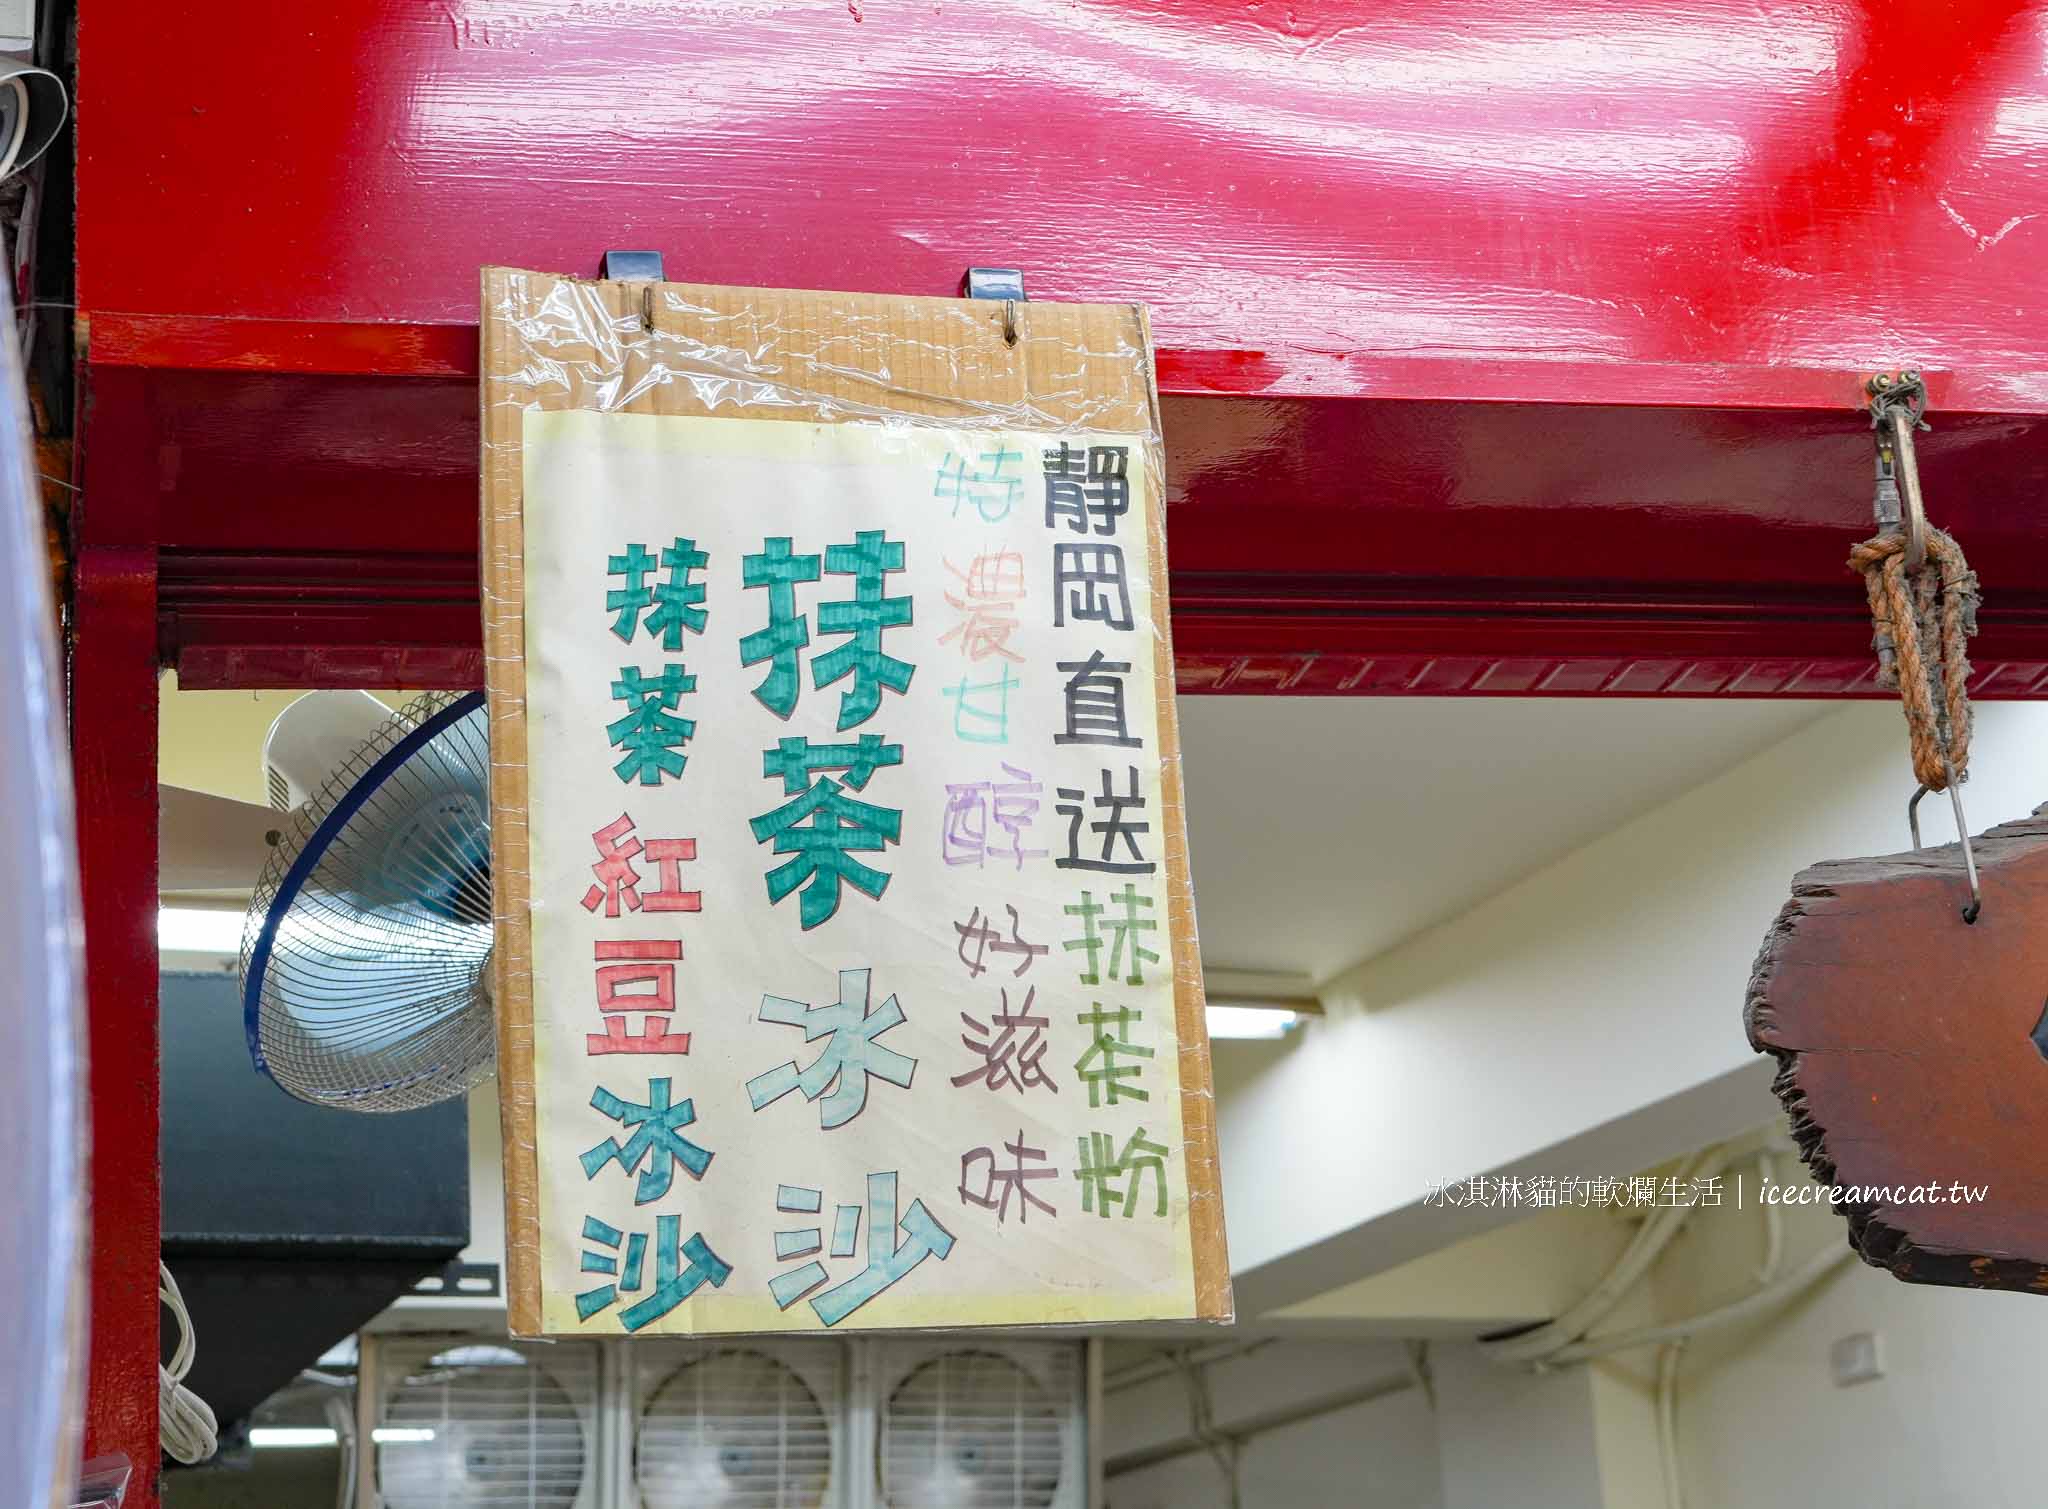 靜岡直送抹茶粉
特濃甘醇好滋味
抹茶冰沙
抹茶紅豆冰沙
冰淇淋貓的軟爛生活 | icecreamcat.tw